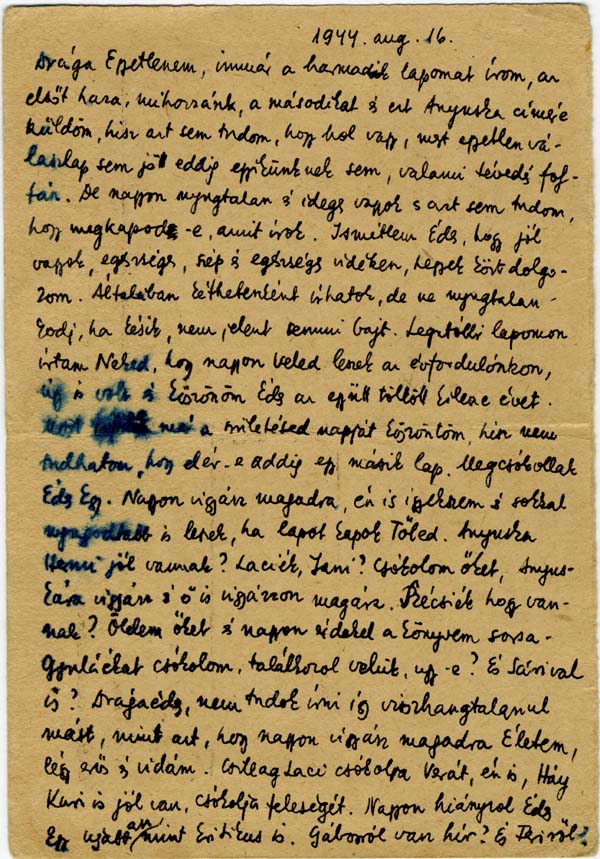 1944. aug. 16.
Drága Egyetlenem, immár a harmadik lapomat írom, az
elsőt haza, mihozzánk, a másodikat s ezt Anyuska címére
küldöm, hisz azt sem tudom, hogy hol vagy, mert egyetlen vá-
laszlap sem jött eddig egyikünknek sem, valami tévedés foly-
tán. De nagyon nyugtalan s ideges vagyok s azt sem tudom,
hogy megkapod-e, amit írok. Ismétlem Édes, hogy jól
vagyok, egészséges, szép és egészséges vidéken, hegyek közt dolgo-
zom. Általában kéthetenként írhatok, de ne nyugtalan-
kodj, ha késik, nem jelent semmi bajt. Legutóbbi lapomon
írtam Neked, hogy nagyon Veled leszek az évfordulónkon,
úgy is volt s köszönöm Édes az együtt töltött kilenc évet.
Most már a születésed napját köszöntöm, hisz nem
tudhatom, hogy elér-e addig egy másik lap. Megcsókollak
Édes Egy. Nagyon vigyázz magadra, én is igyekszem s sokkal
nyugodtabb is leszek, ha lapot kapok Tőled. Anyuska
jól vannak? Laciék, Jani? Csókolom őket, Anyus-
kára vigyázz s ő is vigyázzon magára. hogy van-
nak? Ölelem őket s nagyon érdekel a könyvem sorsa-
Gyuláékat csókolom, találkozol velük, ugy-e? És Sárival
is? Drága édes, nem tudok írni így visszhangtalanul
mást, mint azt, hogy nagyon vigyázz magadra Életem,
légy erős s vidám. Csillag Laci csókolja Verát, én is, Háy
Kari is jól van, csókolja feleségét. Nagyon hiányzol Édes
Egy mint kritikus is. Gáborról van hír? És